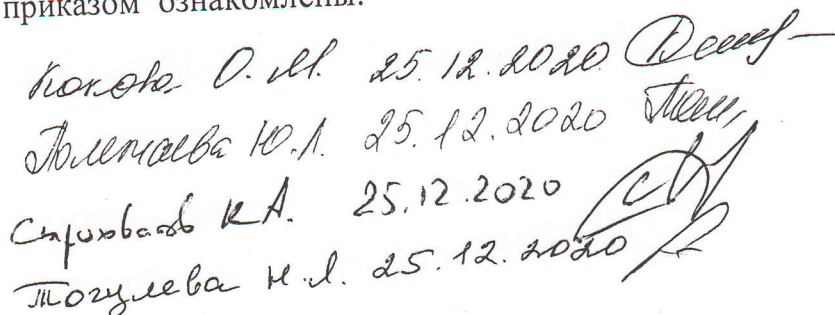 приказом ознакомлены:
Кокова О.М. 25.12.2020
Ю.Л. 25.12.2020
К.А. 25.12.2020
Тогулева Н.Л. 25.12.2020